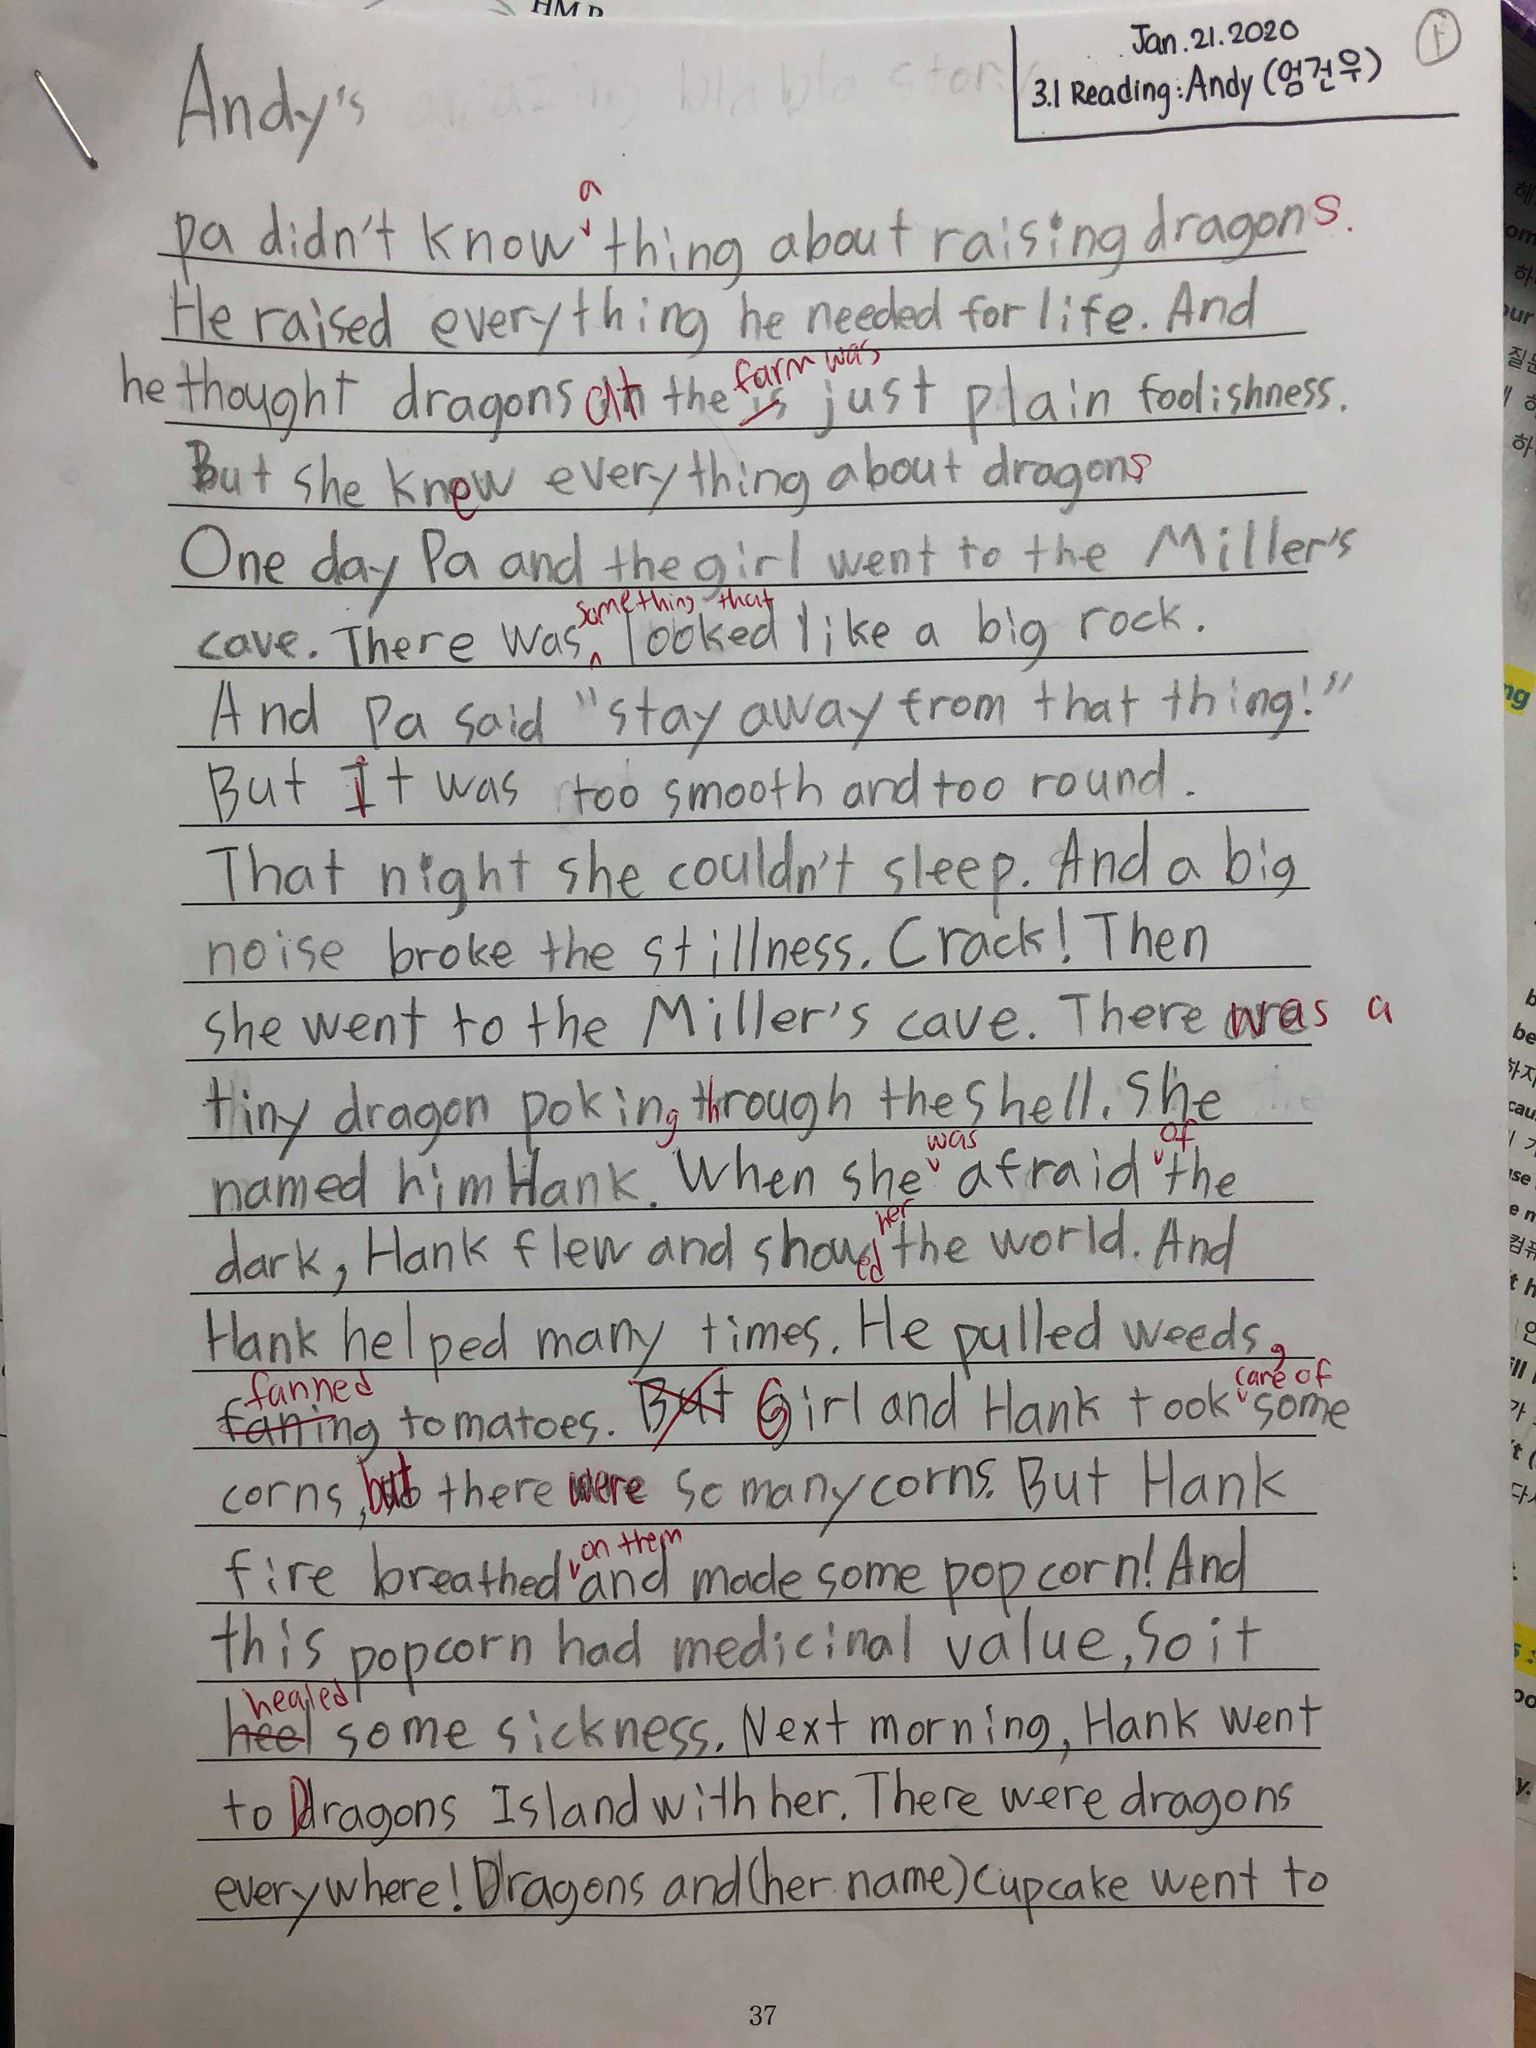 Jan.21.2020
3.1 Reading: Andy (엄건우)
Andy's
a
pa didn't know thing about raising dragons.
He raised everything he needed for life. And
farm was
he thought dragons at the is just plain foolishness.
But she knew everything about dragons
One day Pa and the girl went to the Miller's
something that
cave. There was looked like a big rock.
And Pa said "stay away from that thing!"
But It was too smooth and too round.
That night she couldn't sleep. And a big
noise broke the stillness. Crack! Then
she went to the Miller's cave. There was a
tiny dragon poking through the shell. She
was of
named him Hank. When she afraid the
her
dark, Hank flew and showed the world. And
Hank helped many times. He pulled weeds,
fanned care of
faning tomatoes. But Girl and Hank took some
corns, but there were so many corns. But Hank
on them
fire breathed and made some popcorn! And
this popcorn had medicinal value, so it
healed
heel some sickness. Next morning, Hank went
to Dragons Island with her. There were dragons
everywhere! Dragons and (her name) Cupcake went to
37